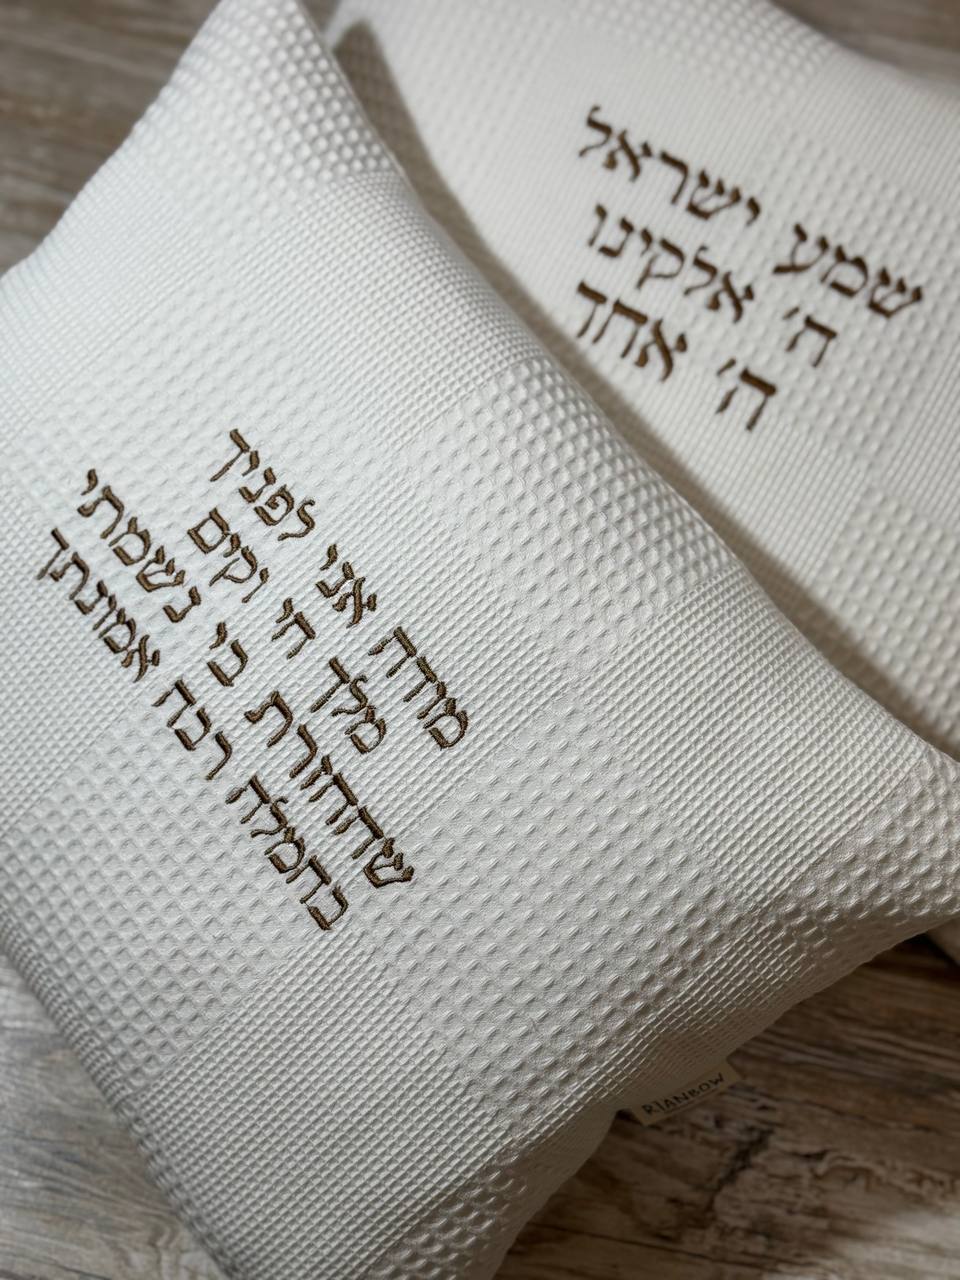 שמע ישראל
ה' אלקינו
ה' אחד
מודה אני לפניך
מלך חי וקים
שהחזרת בי נשמתי
בחמלה רבה אמונתך
RIANBOW